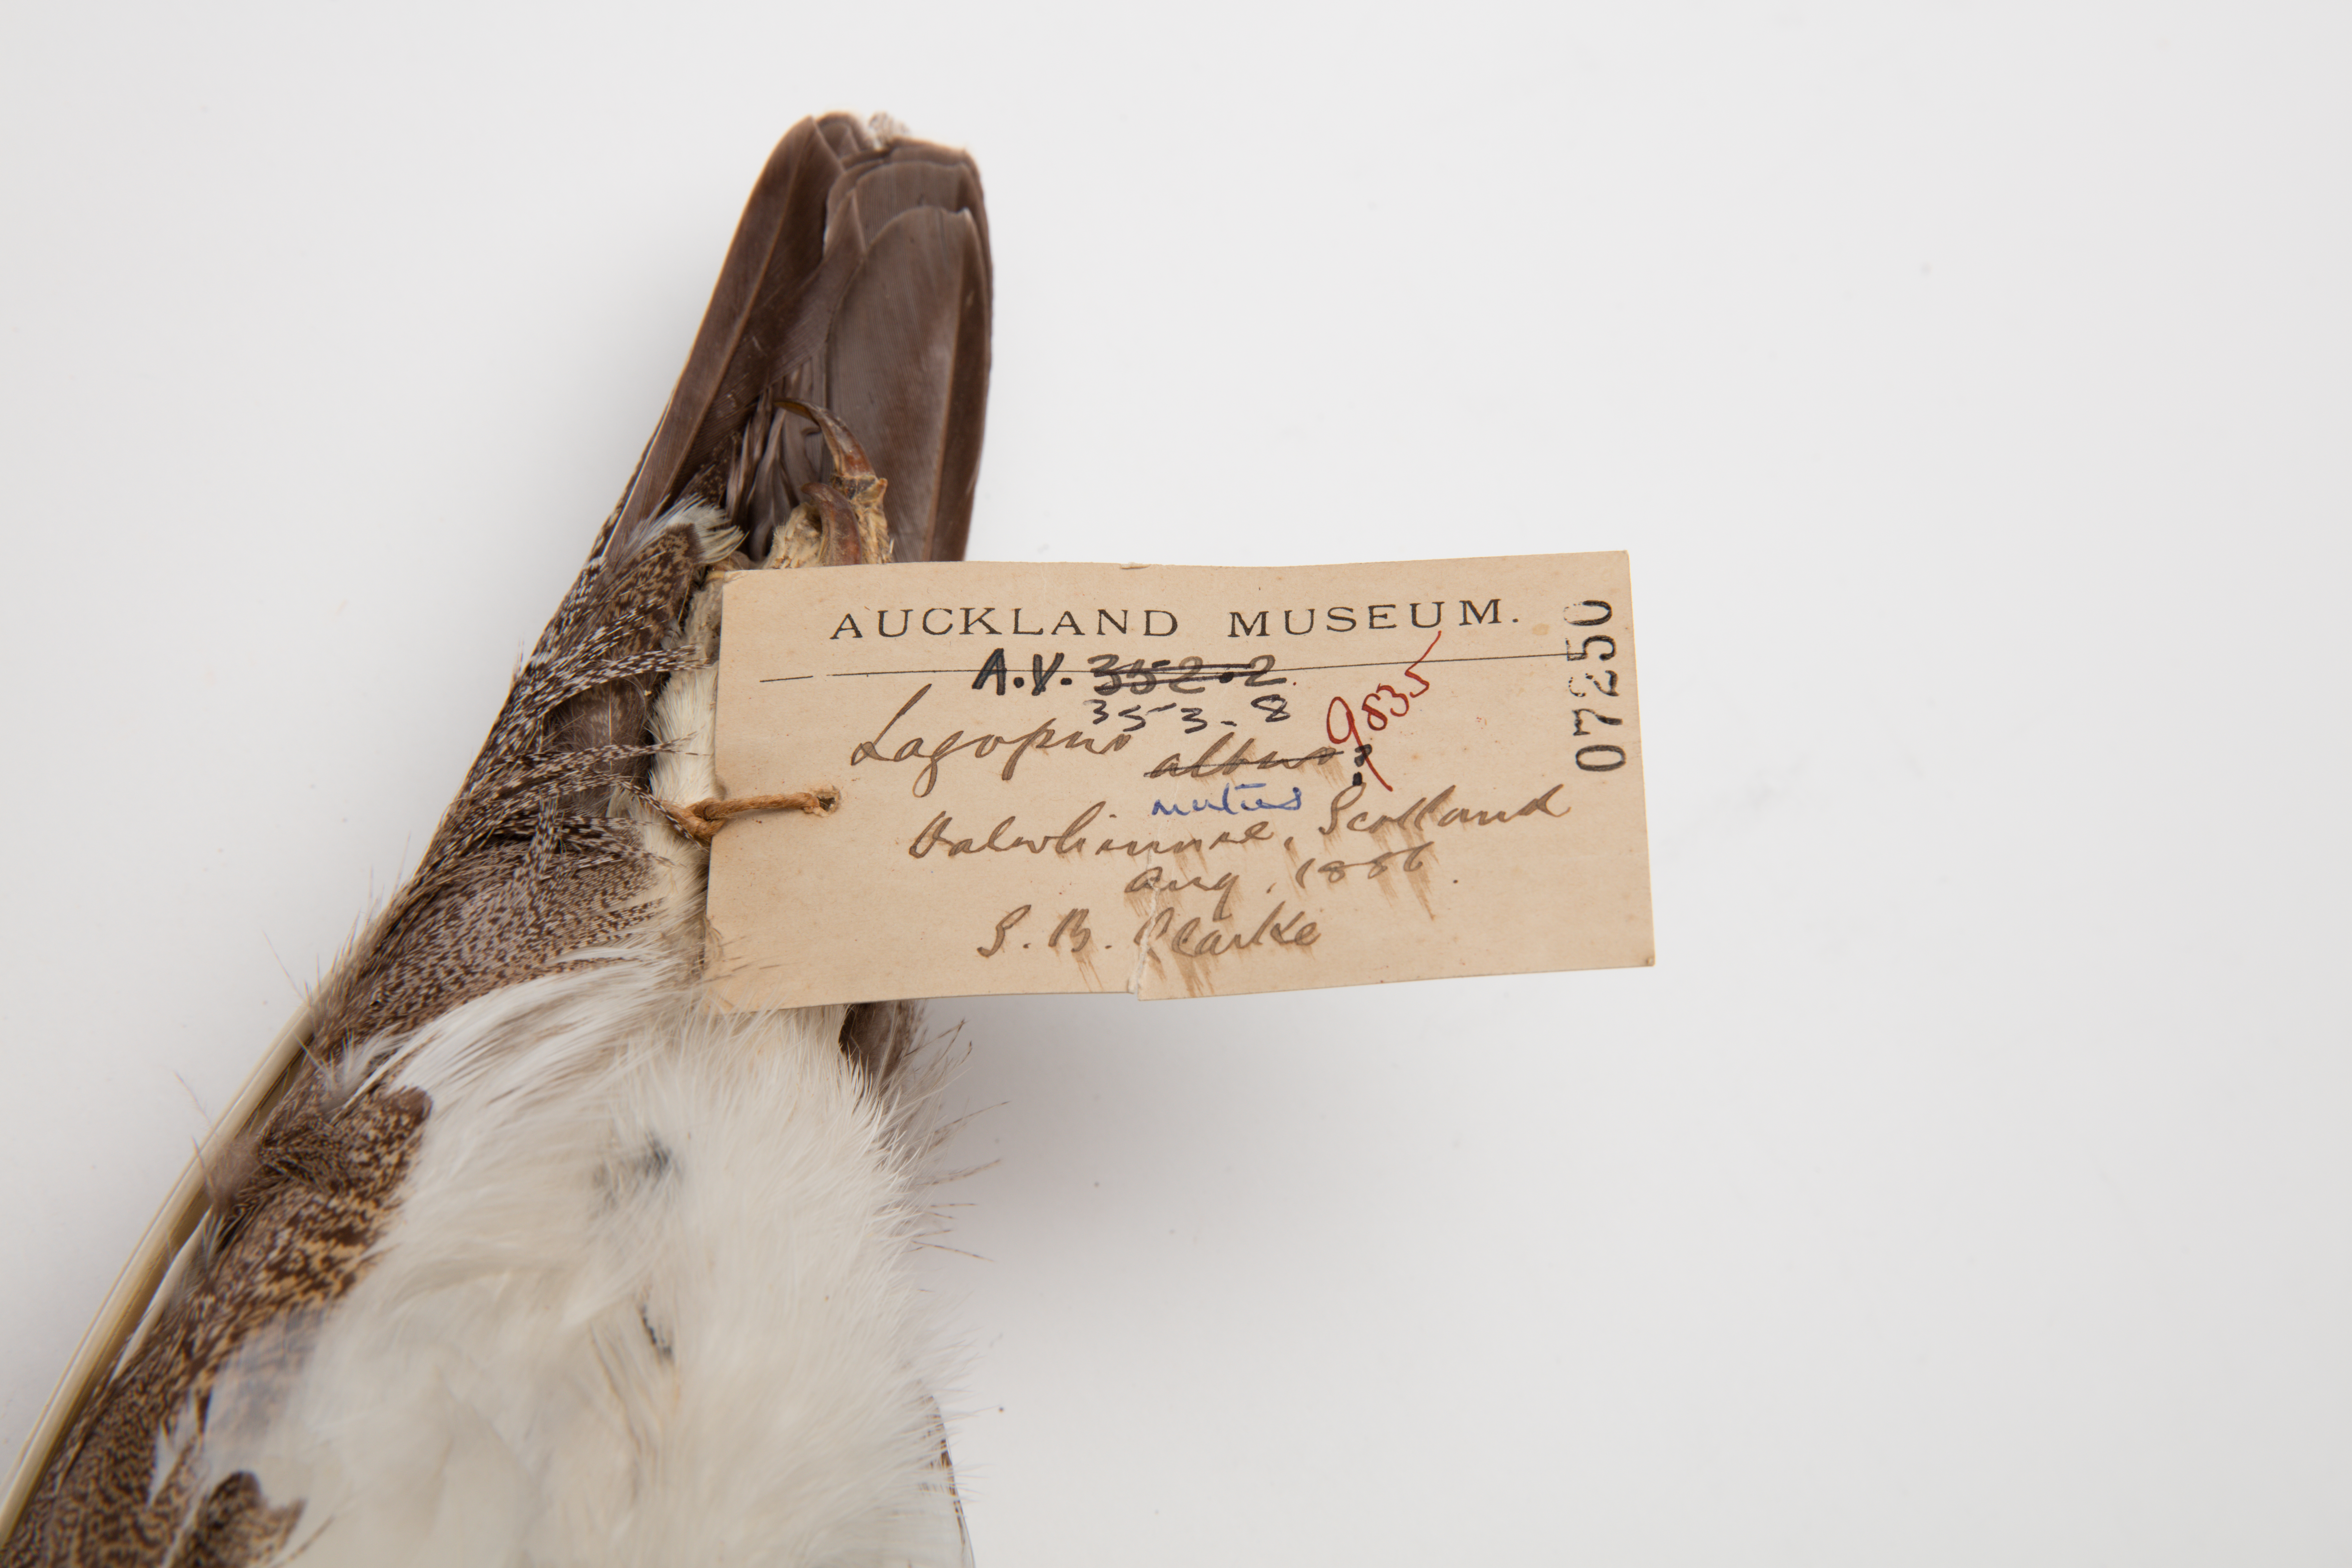 AUCKLAND MUSEUM.
A.V. 352.2
353.8
9835
Lagopus albus?
mutus
Dalwhinnie, Scotland
Aug. 1886.
S. B. Clarke
07250